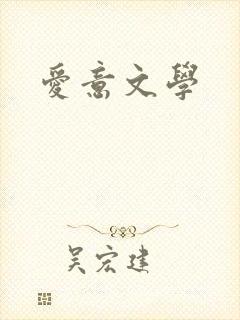 愛意文學
吴宏建